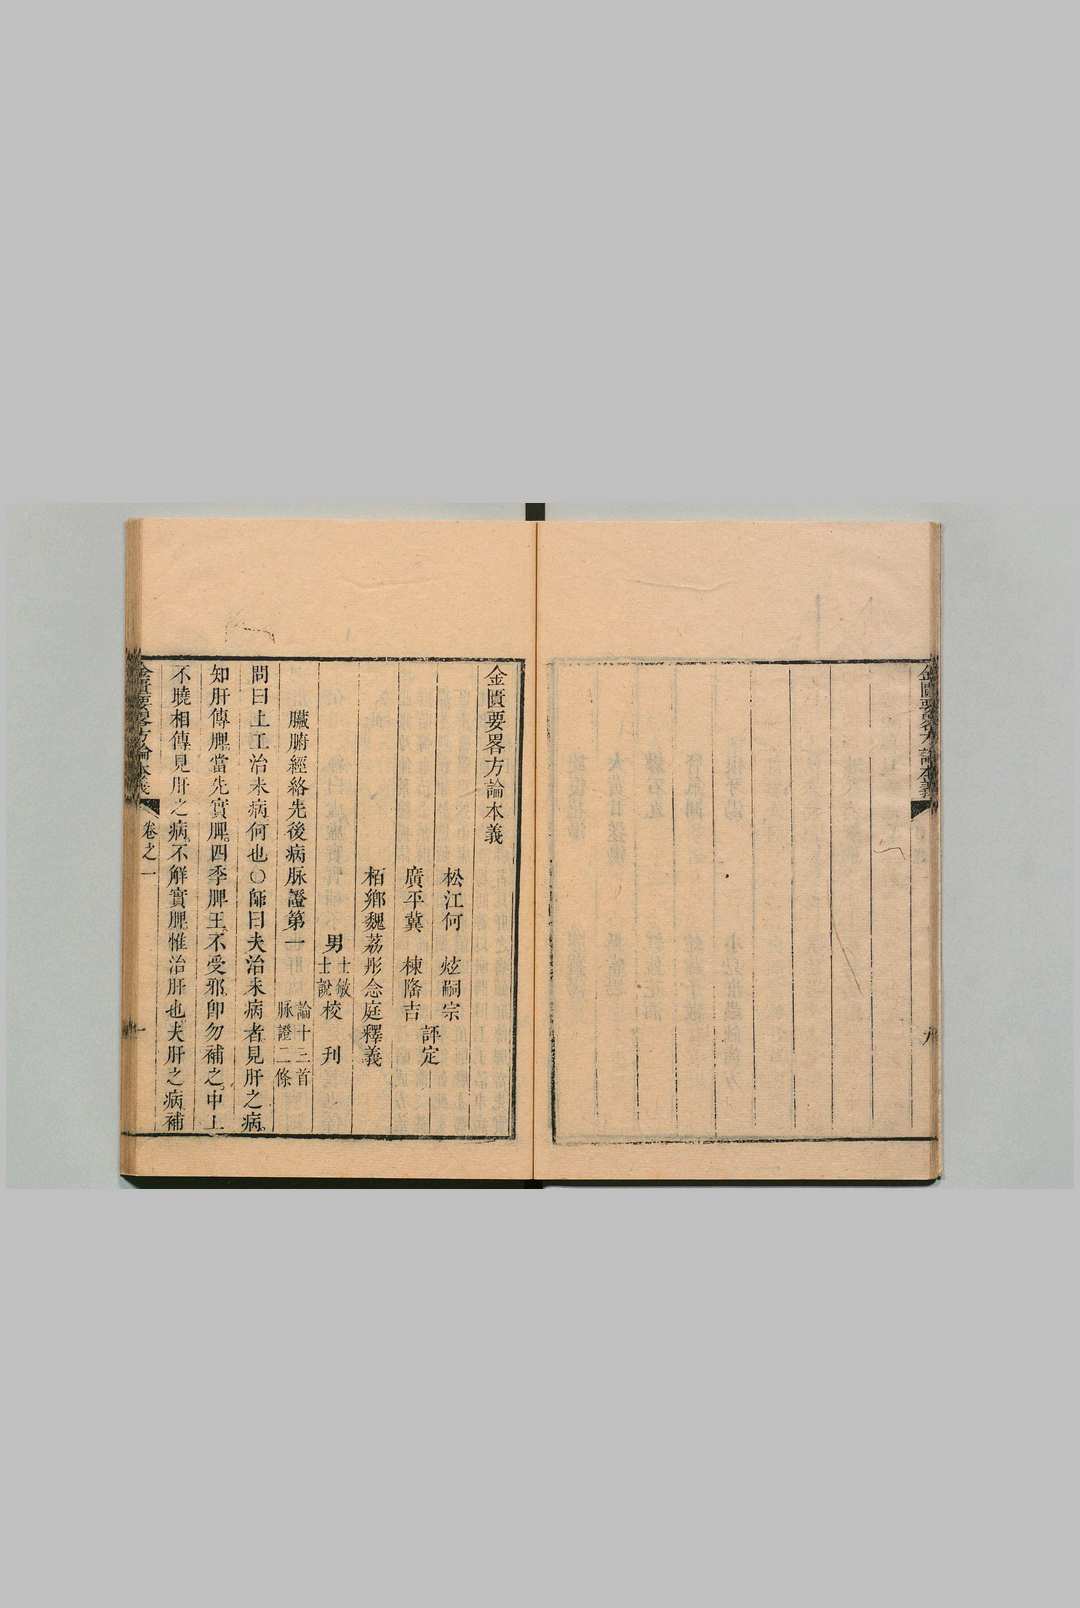 金匱要畧方論本義
九
金匱要畧方論本義
松江何 炫嗣宗
廣平冀 棟隆吉
評定
栢鄉魏荔彤念庭釋義
男士敏士說校 刊
臟腑經絡先後病脉證第一
論十三首
脉證二條
問曰上工治未病何也〇師曰夫治未病者見肝之病
知肝傳脾當先實脾四季脾王不受邪卽勿補之中上
不曉相傳見肝之病不解實脾惟治肝也夫肝之病補
金匱要畧方論本義
卷之一
一